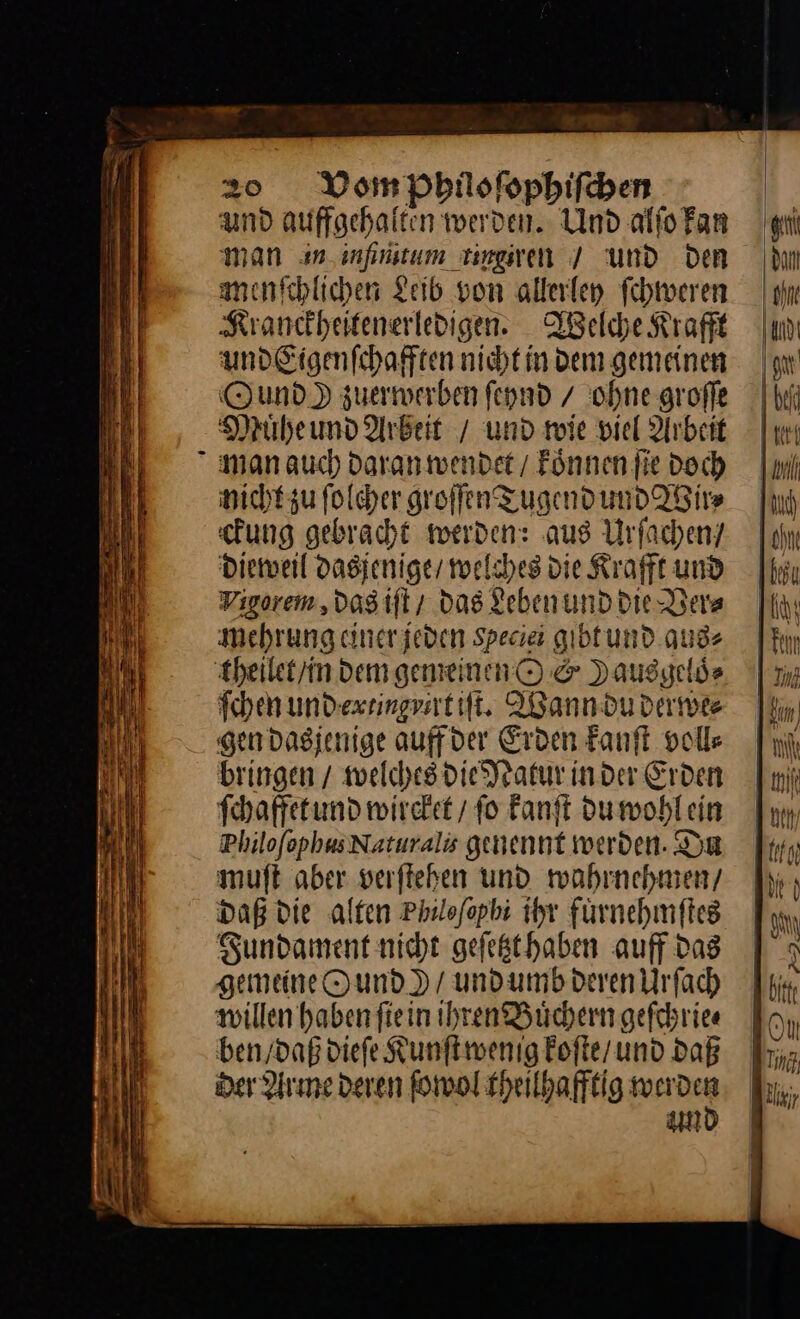 20 Vom Philosophischen
und auffgehalten werden. Und alſo kan
man in infinitum tingiren / und den
menſchlichen Leib von allerley ſchweren
Kranckheiten erledigen. Welche Krafft
und Eigenſchafften nicht in dem gemeinen
☉ und ☽ zuerwerben ſeynd / ohne groſſe
Mühe und Arbeit / und wie viel Arbeit
man auch daran wendet / können ſie doch
nicht zu ſolcher groſſen Tugend und Wir⸗
ckung gebracht werden: aus Urſachen /
dieweil dasjenige / welches die Krafft und
Vigorem, das iſt / das Leben und die Ver⸗
mehrung einer jeden Speciei gibt und aus⸗
theilet / in dem gemeinen ☉ & ☽ ausgelö⸗
ſchen und extingvirt iſt. Wann du derwe⸗
gen dasjenige auff der Erden kanſt voll⸗
bringen / welches die Natur in der Erden
ſchaffet und wircket / ſo kanſt du wohl ein
Philoſophus Naturalis genennt werden. Du
muſt aber verſtehen und wahrnehmen /
daß die alten Philoſophi ihr fürnehmſtes
Fundament nicht geſetzt haben auff das
gemeine ☉ und ☽ / und umb deren Urſach
willen haben ſie in ihren Büchern geſchrie⸗
ben / daß dieſe Kunſt wenig koſte / und daß
der Arme deren ſowol theilhafftig werden
und